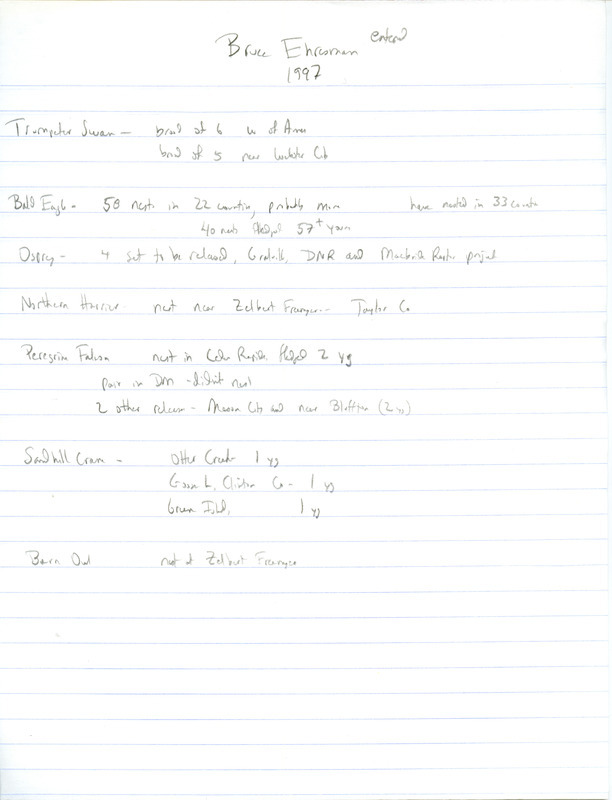 Bruce Ehresman entered
1997
Trumpeter Swan - brood of 6 W of Ames
brood of 5 near Webster Cit
Bald Eagle - 58 nests in 22 counties, probably more have nested in 33 counties
40 nests fledged 57+ young
Osprey - 4 set to be released, Coralville, DNR and Macbride Raptor project
Northern Harrier - nest near Zelbert Freemyer - Taylor Co
Peregrine Falcon nest in Cedar Rapids fledged 2 yg
pair in DM - didn't nest
2 other release - Mason City and near Bluffton (2 yg)
Sandhill Crane - Otter Creek - 1 yg
Goose L, Clinton Co - 1 yg
Green Isld, 1 yg
Barn Owl nest at Zelbert Freemyer